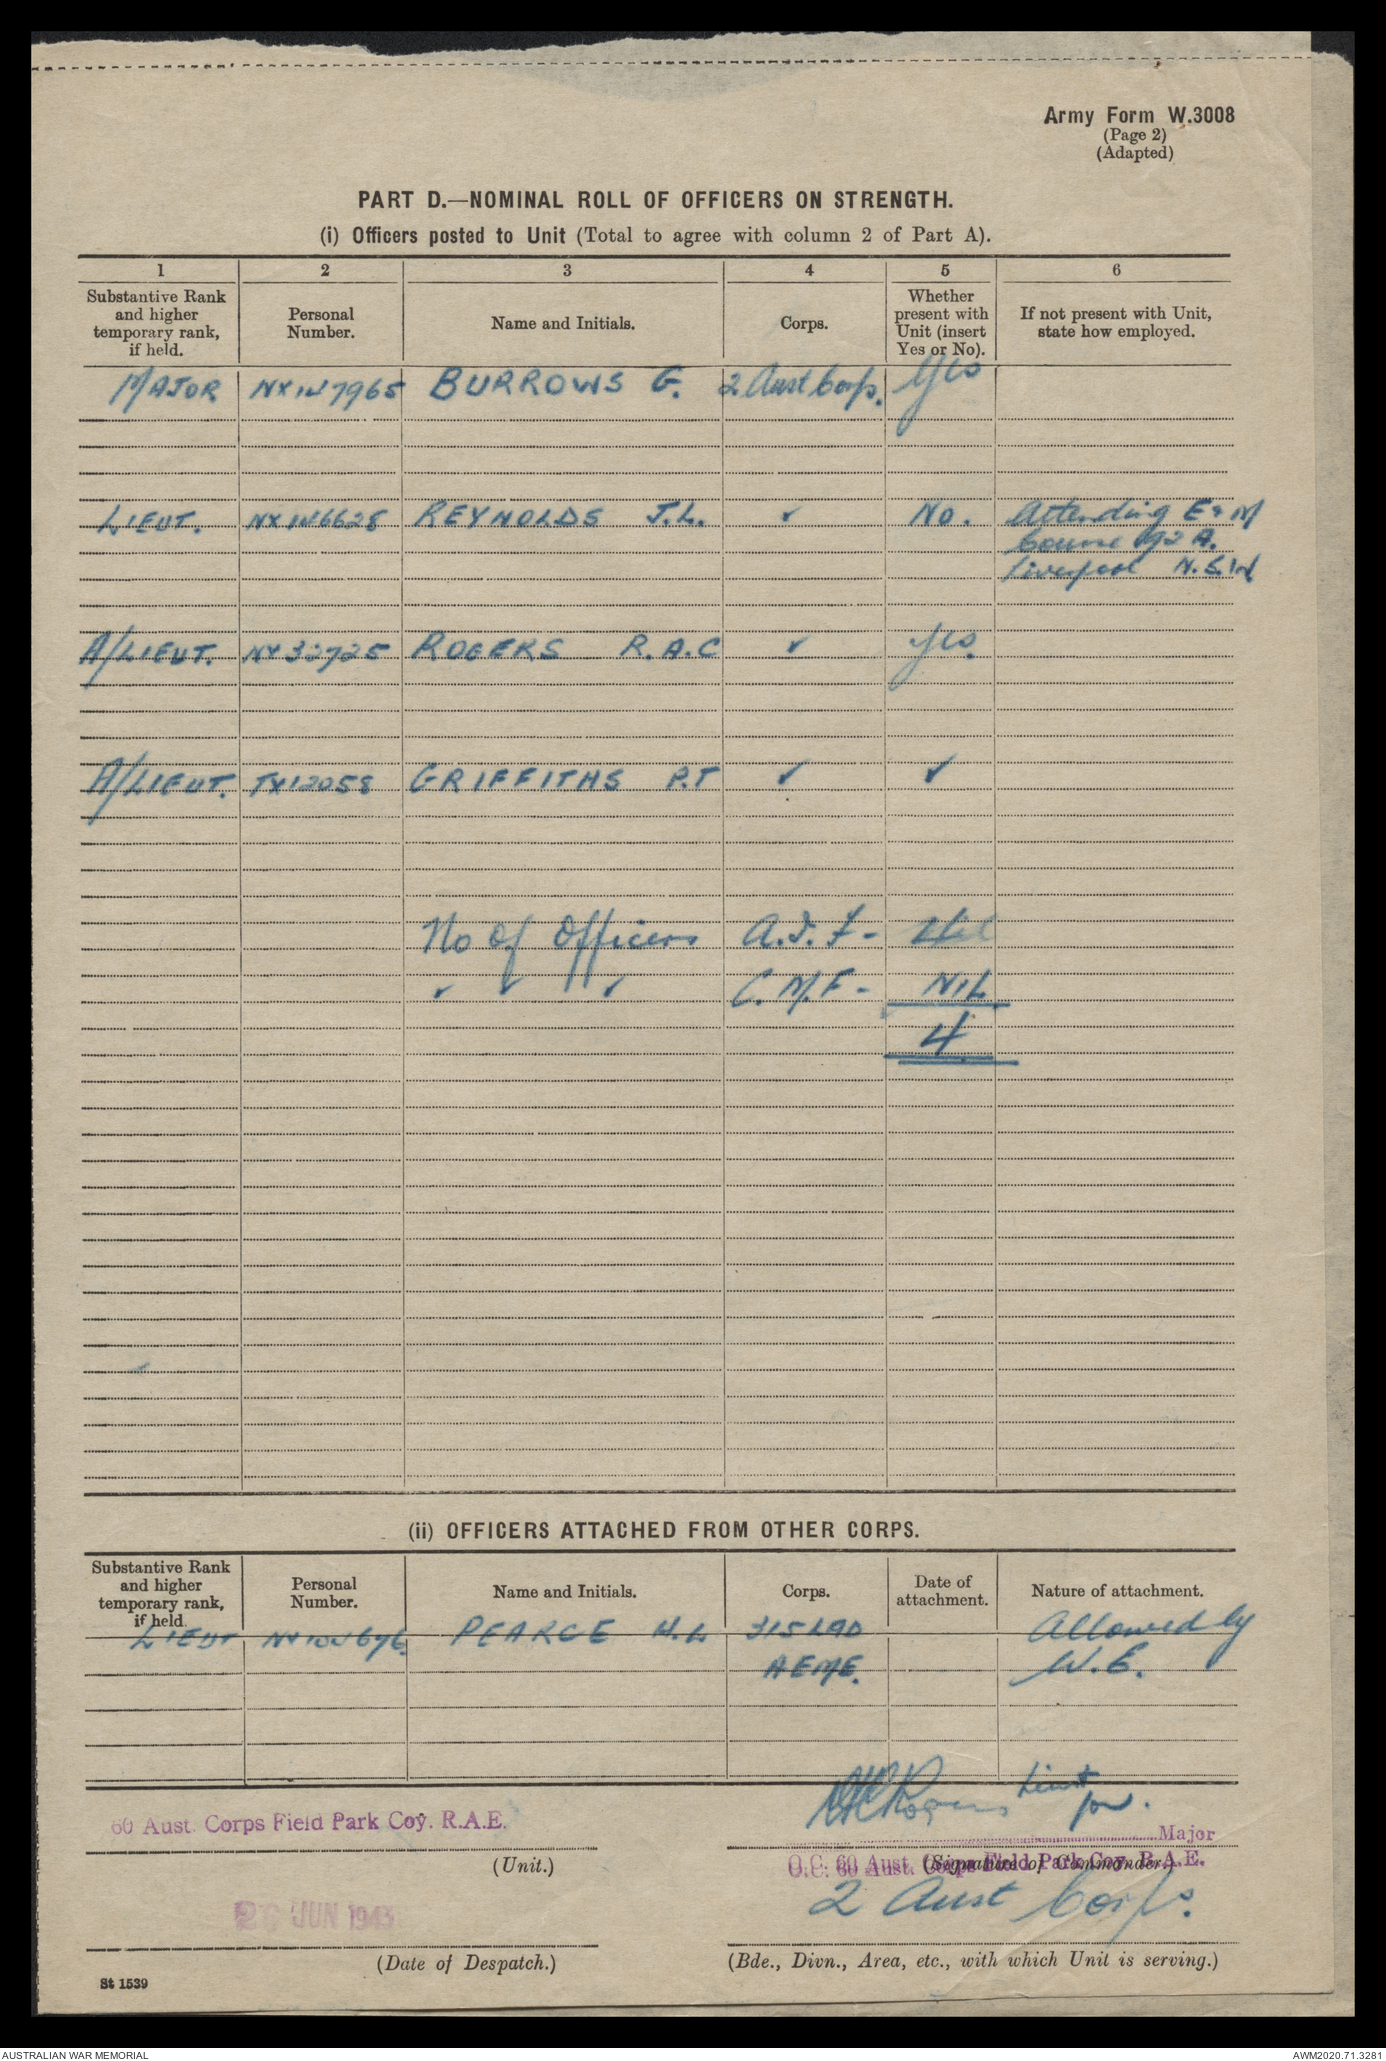 Army Form W.3008
(Page 2)
(Adapted)
PART D.—NOMINAL ROLL OF OFFICERS ON STRENGTH.
(i) Officers posted to Unit (Total to agree with column 2 of Part A).
1 2 3 4 5 6
Substantive Rank and higher temporary rank, if held. Personal Number. Name and Initials. Corps. Whether present with Unit (insert Yes or No). If not present with Unit, state how employed.
MAJOR BURROWS G. 2 Aust Corps. Yes
LIEUT. REYNOLDS J.L. ✓ No. Attending E & M
Course
Liverpool N.S.W
A/LIEUT. NX32725 ROGERS R.A.C ✓ Yes.
A/LIEUT. TX12058 GRIFFITHS P.T ✓ ✓
No of Officers A.I.F -
✓ ✓ ✓ C.M.F - NIL
4
(ii) OFFICERS ATTACHED FROM OTHER CORPS.
Substantive Rank and higher temporary rank, if held. Personal Number. Name and Initials. Corps. Date of attachment. Nature of attachment.
LIEUT PEARCE H.L 315 LAD Allowed by
AEME. W.E.
Lieut
for.
60 Aust. Corps Field Park Coy. R.A.E.
Major
(Unit.)
O.C. 60 Aust. Corps Field Park Coy. R.A.E.
(Signature of Commander.)
2 Aust Corps.
JUN 1943
(Date of Despatch.)
(Bde., Divn., Area, etc., with which Unit is serving.)
St 1539
AUSTRALIAN WAR MEMORIAL
AWM2020.71.3281